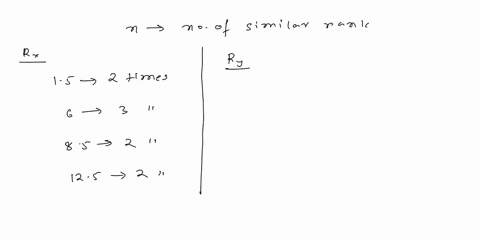 n → no. of similar rank
Rx
Ry
1.5 → 2 times
6 → 3 "
8.5 → 2 "
12.5 → 2 "